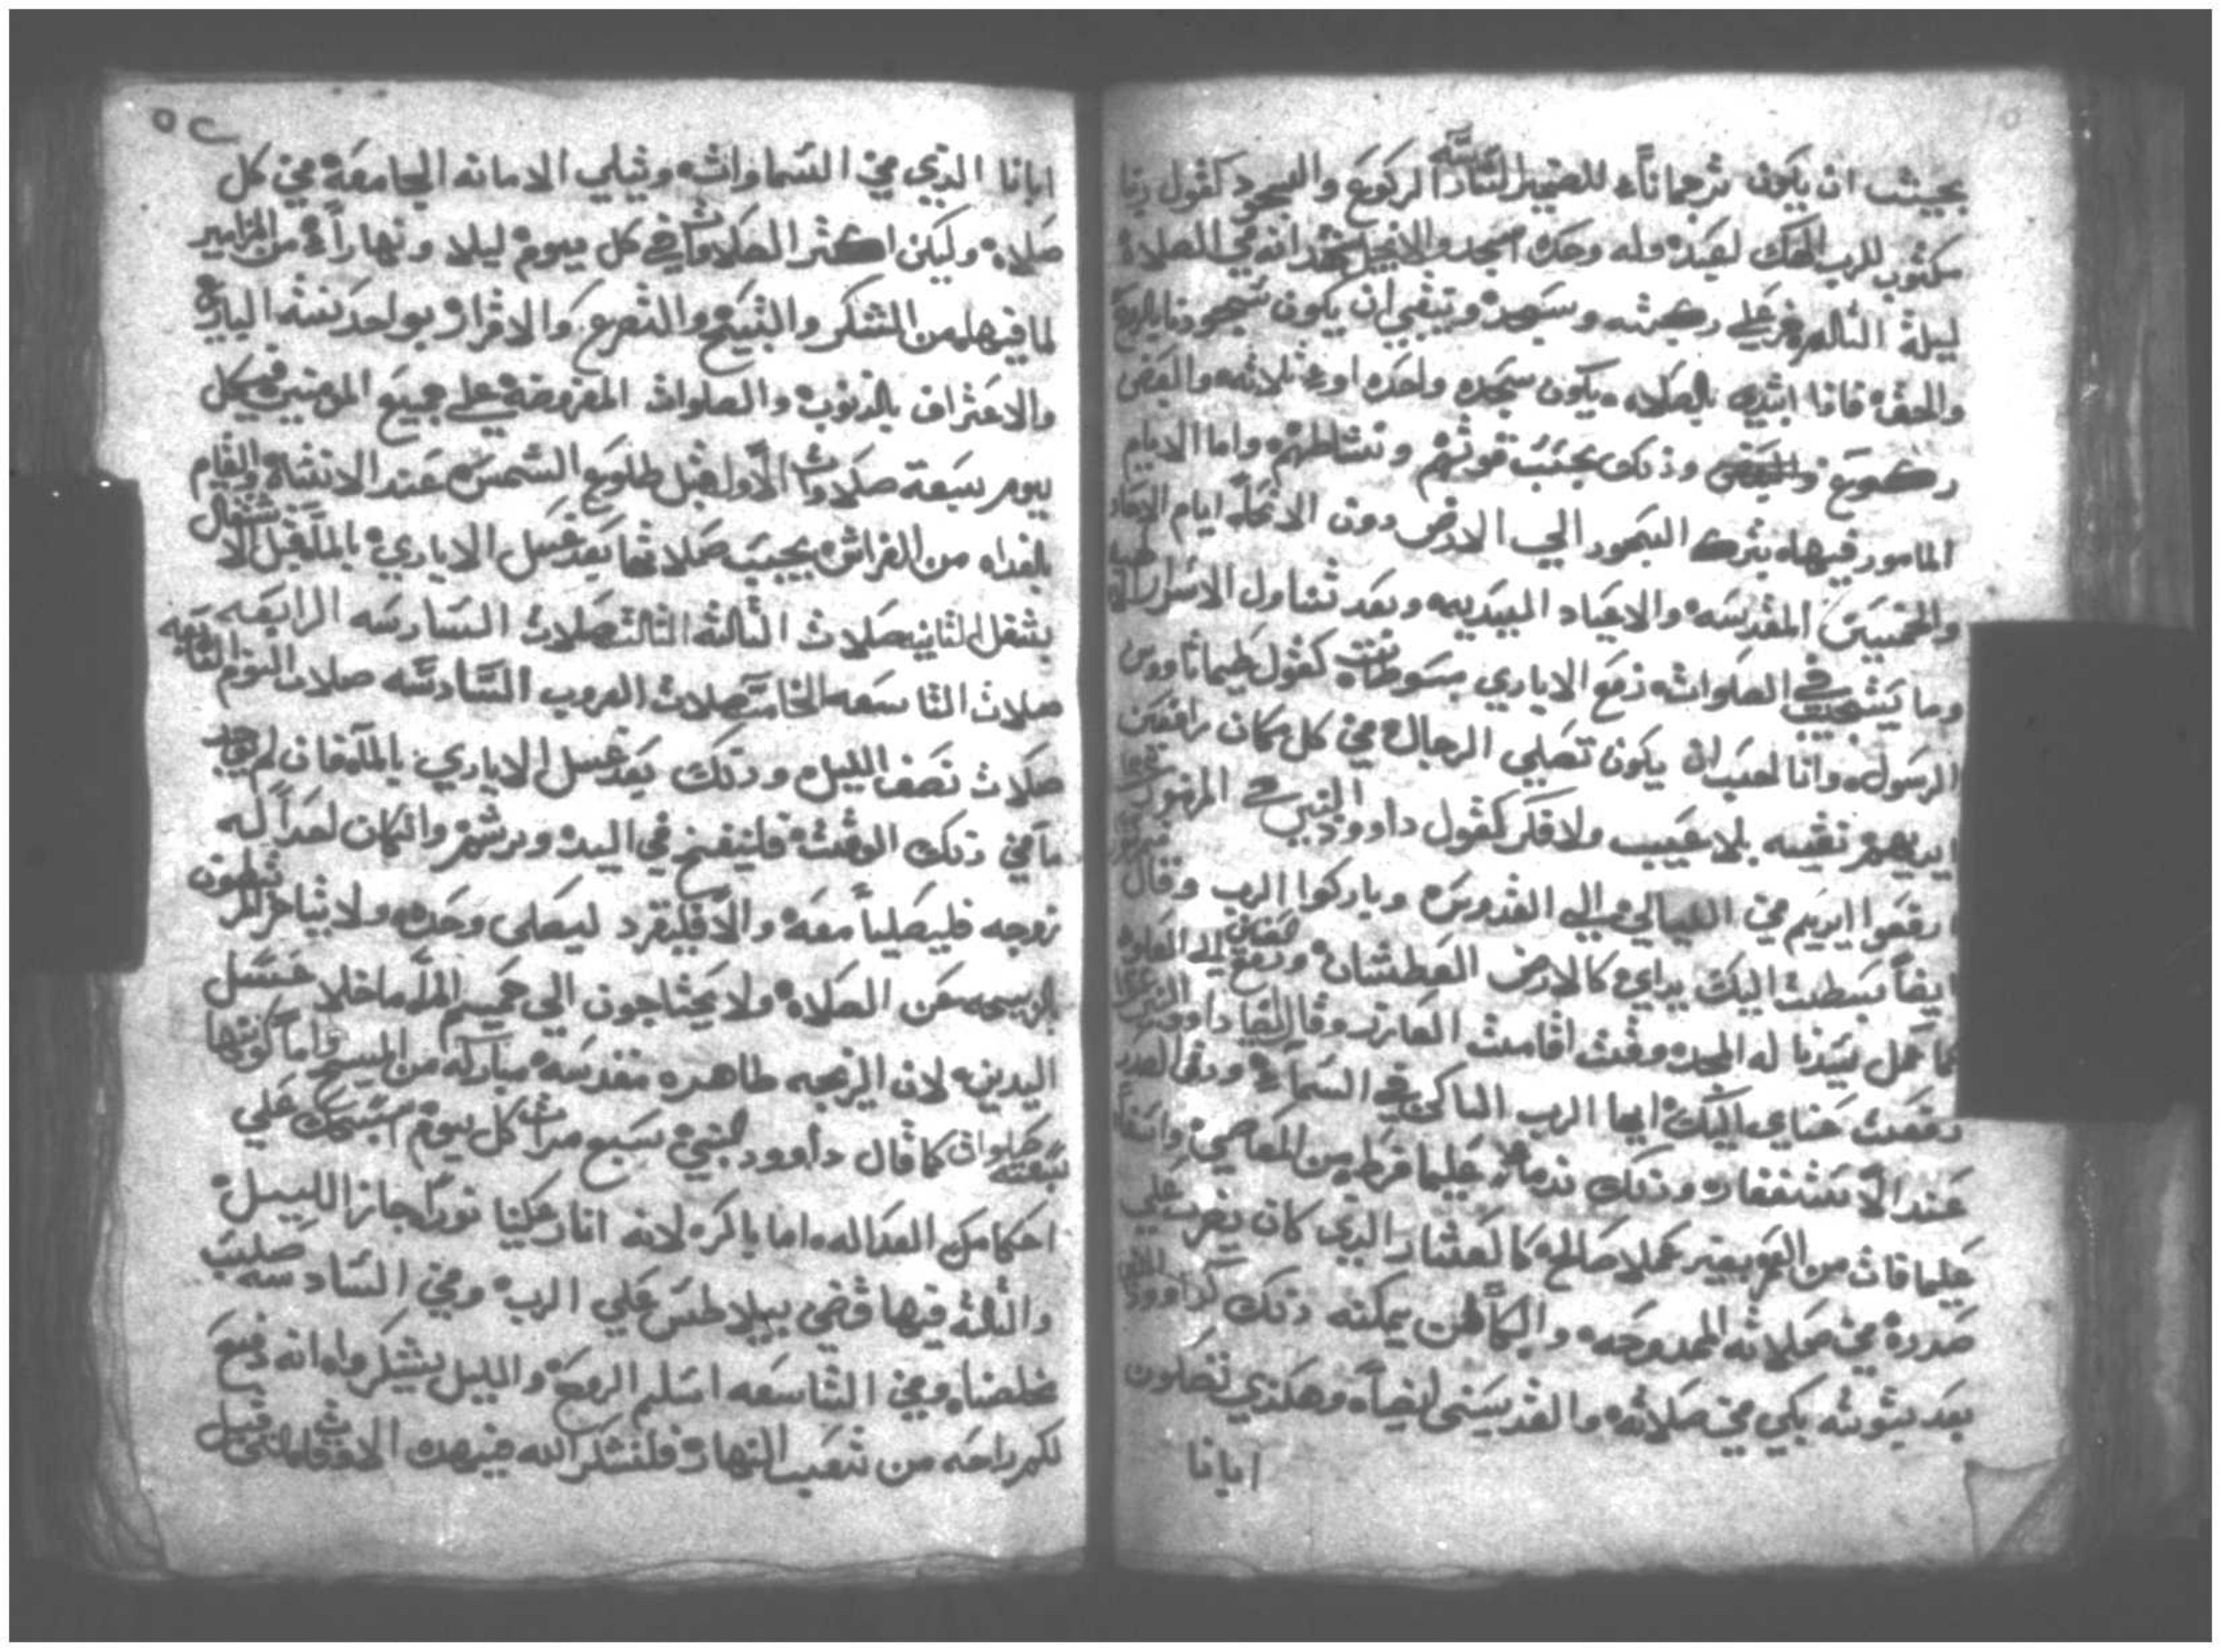 بحيث ان يكون ترجمانا للضمير الثالثه الركوع والسجود كقول ربنا
مكتوب للرب الهك تعبد وله وحده اسجد والانجيل يشهد انه في الصلاة
ليلة التالم خر علي ركبته وسجد وينبغي ان يكون سجودنا بالروح
والحق فاذا ابتدي بالصلاه يكون سجده واحده او ثلاثه والبعض
ركوع وذلك بحسب قوتهم ونشاطهم واما الايام
المامور فيها بترك السجود الي الارض دون الانحنا ايام الاحاد
والخمسين المقدسه والاعياد السيديه وبعد تناول الاسرار
وما يستحب في الصلوات رفع الايادي بسوطات كقول طيماثاووس
الرسول وانا احب ان يكون تصلي الرجال في كل مكان رافعين
ايديهم نقيه بلا غيب ولا فكر كقول داوود النبي في المزمور
ارفعوا ايديكم في الليالي الي القدوس وباركوا الرب وقال
ايضا بسطت اليك يداي كالارض العطشانه ورفع الي العلو
كما عمل سيدنا له المجد وقت اقامت العازر وقال ايضا داوود
رفعت عيناي اليك ايها الرب الساكن في السماء ودق الصدر
عند الاستغفار وذلك ندما علي ما فرط من المعاصي واسفا
علي ما فات من العمر بغير عملا صالح كالعشار الذي كان يضرب علي
صدره في صلاته الممدوحه والبكا لمن يمكنه ذلك كداوود
بعد توبته بكي في صلاته والقديسين ايضا وهكذي تصلون
ابانا
٥٢
ابانا الذي في السماوات وتتلي الامانه الجامعة في كل
صلاة وليكن اكثر الصلاوات في كل يوم ليلا ونهارا من المزامير
لما فيها من الشكر والتسبيح والتضرع والاقرار بواحدنيته الباري
والاعتراف بالدنوب والصلوات المفروضة علي جميع المومنين في كل
يوم سبعة صلاوات الاول قبل طلوع الشمس عند الانتباه والقيام
بالغداه من الفراش يجب صلاتها بعد غسل الايادي بالما قبل الاشتغال
بشغل الثانيه صلات الثالثه الثالثه صلات السادسه الرابعه
صلات التاسعه الخامسه صلات الغروب السادسه صلات النوم السابعه
صلات نصف الليل وذلك بعد غسل الايادي بالما فان لم يوجد
ما في ذلك الوقت فلينفخ في اليد ويرشم وان كان احدا له
زوجه فليصليا معه والا فلينفرد ليصلي وحده ولا يتاخر
عن الصلاة ولا يحتاجون الي حميم الما ما خلا غسل
اليدين لان الزيجه طاهره مقدسه مباركه من المسيح واما كونها
سبعة صلوات كما قال داوود النبي سبع مرات كل يوم اسبحك علي
احكامك العداله اما باكر لانه انار علينا نورا جاز الليل
والثالثه فيها قضي بيلاطس علي الرب وفي السادسه صلب
مخلصنا وفي التاسعه اسلم الروح والليل يشكروا انه دفع
لكم راحه من تعب النهار فلنشكر الله فيهده الاوقات